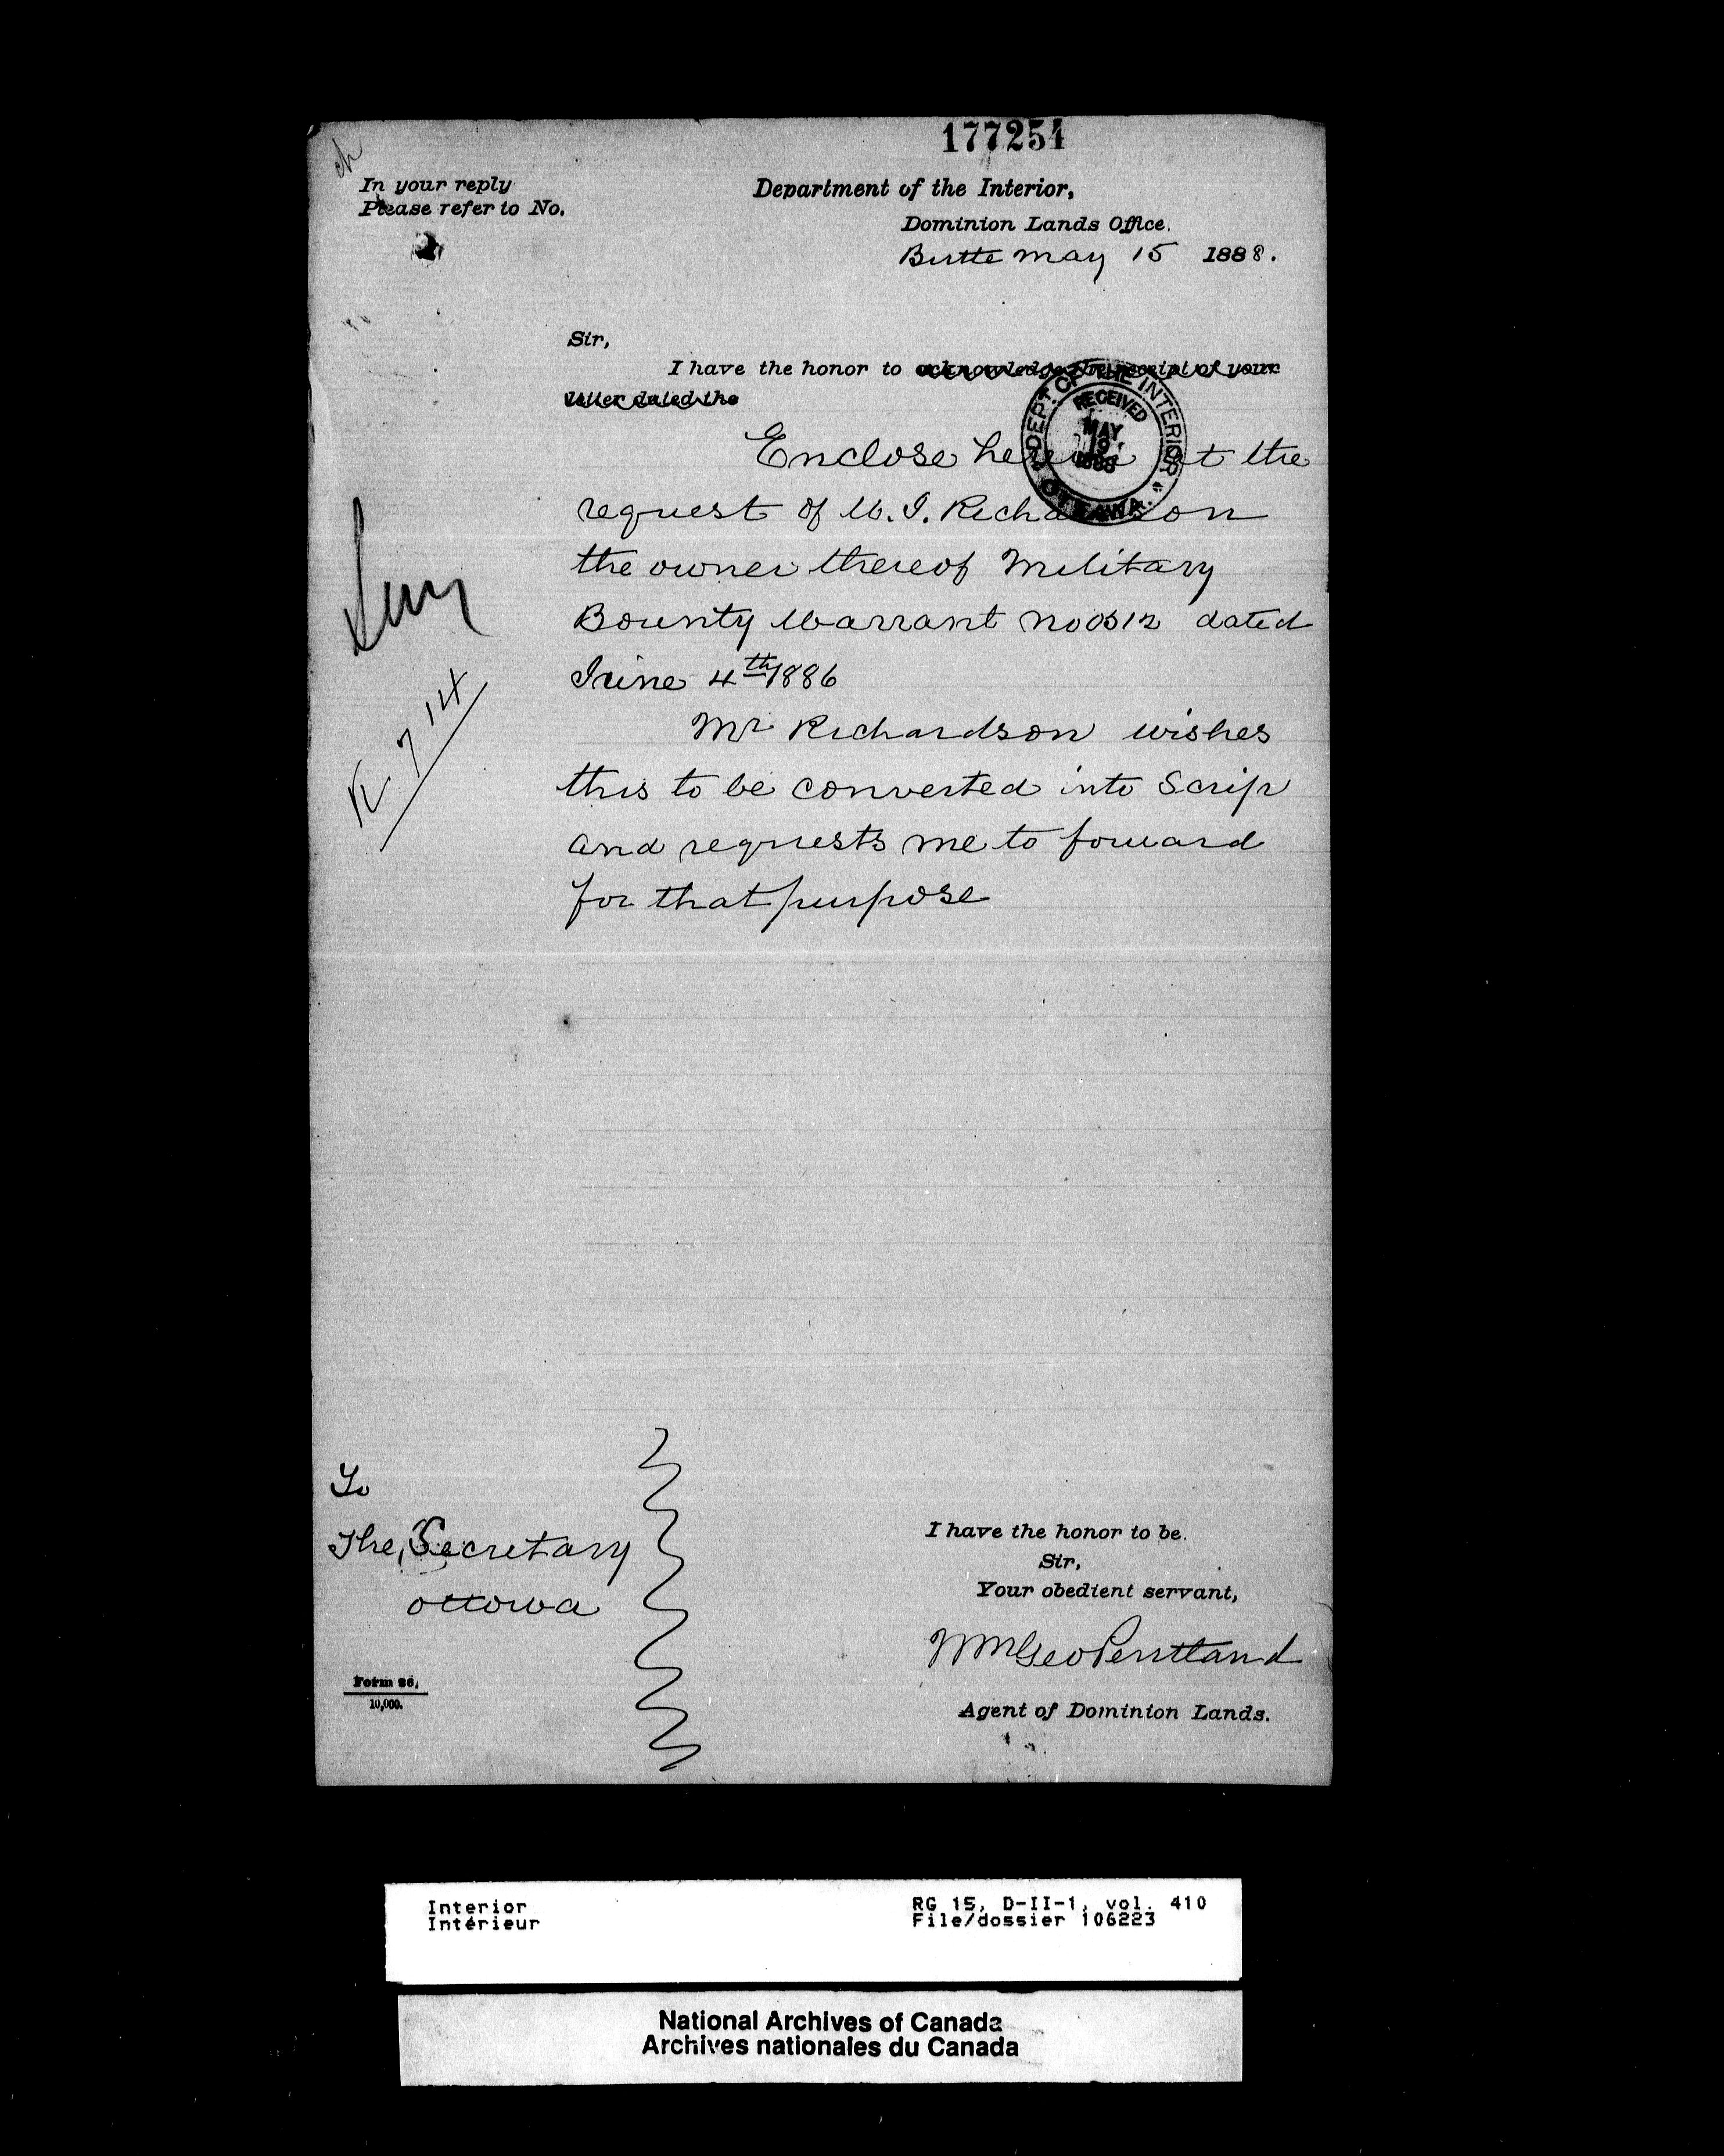 177254
In your reply
Please refer to No.
Department of the Interior,
Dominion Lands Office.
Butte May 15 1888.
Sir,
I have the honor to acknowledge the receipt of your
letter dated the
DEPT. OF THE INTERIOR
RECEIVED
MAY
19
1888
OTTAWA.
Enclose herewith at the
request of W. J. Richardson
the owner thereof Military
Bounty Warrant No 0512 dated
June 4th 1886
Mr Richardson wishes
this to be converted into Scrip
and requests me to forward
for that purpose
K 714
To
The Secretary
Ottowa
I have the honor to be.
Sir,
Your obedient servant,
Wm Geo Pentland
Agent of Dominion Lands.
Form 26.
10,000.
Interior
Intérieur
RG 15, D-II-1, vol. 410
File/dossier 106223
National Archives of Canada
Archives nationales du Canada